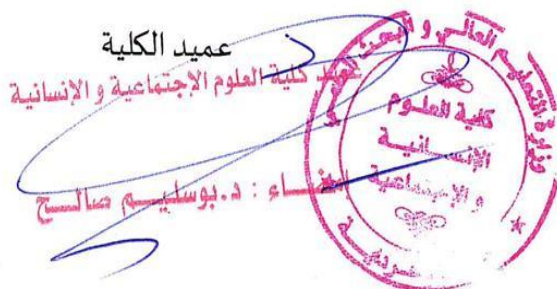 عميد الكلية
عميد كلية العلوم الإجتماعية و الإنسانية
الإمضاء : د.بوسليم صالح
وزارة التعليم العالي و البحث العلمي
كلية العلوم
الإنسانية
و الإجتماعية